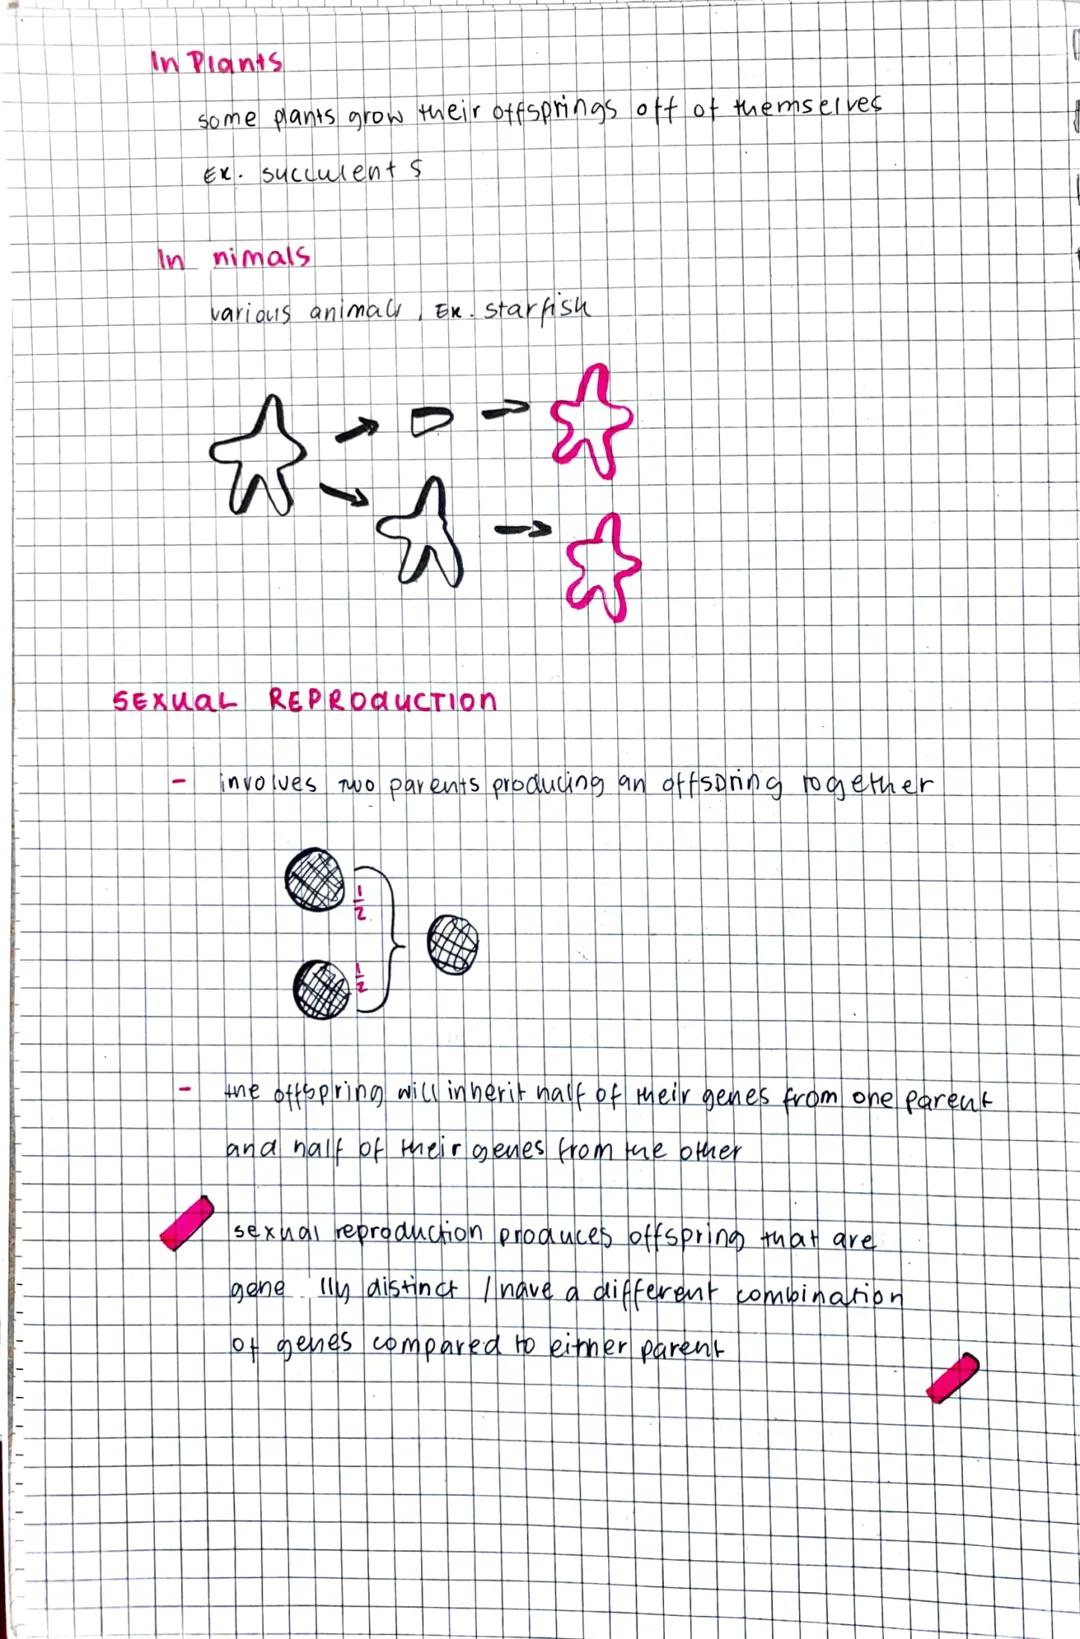 In Plants
some plants grow their offsprings off of themselves
Ex. succulents
In nimals
various animals, Ex. starfish
SEXUAL REPRODUCTION
- involves two parents producing an offspring together
1/2
1/2
- the offspring will inherit half of their genes from one parent
and half of their genes from the other
sexual reproduction produces offspring that are
gene lly distinct / have a different combination
of genes compared to either parent